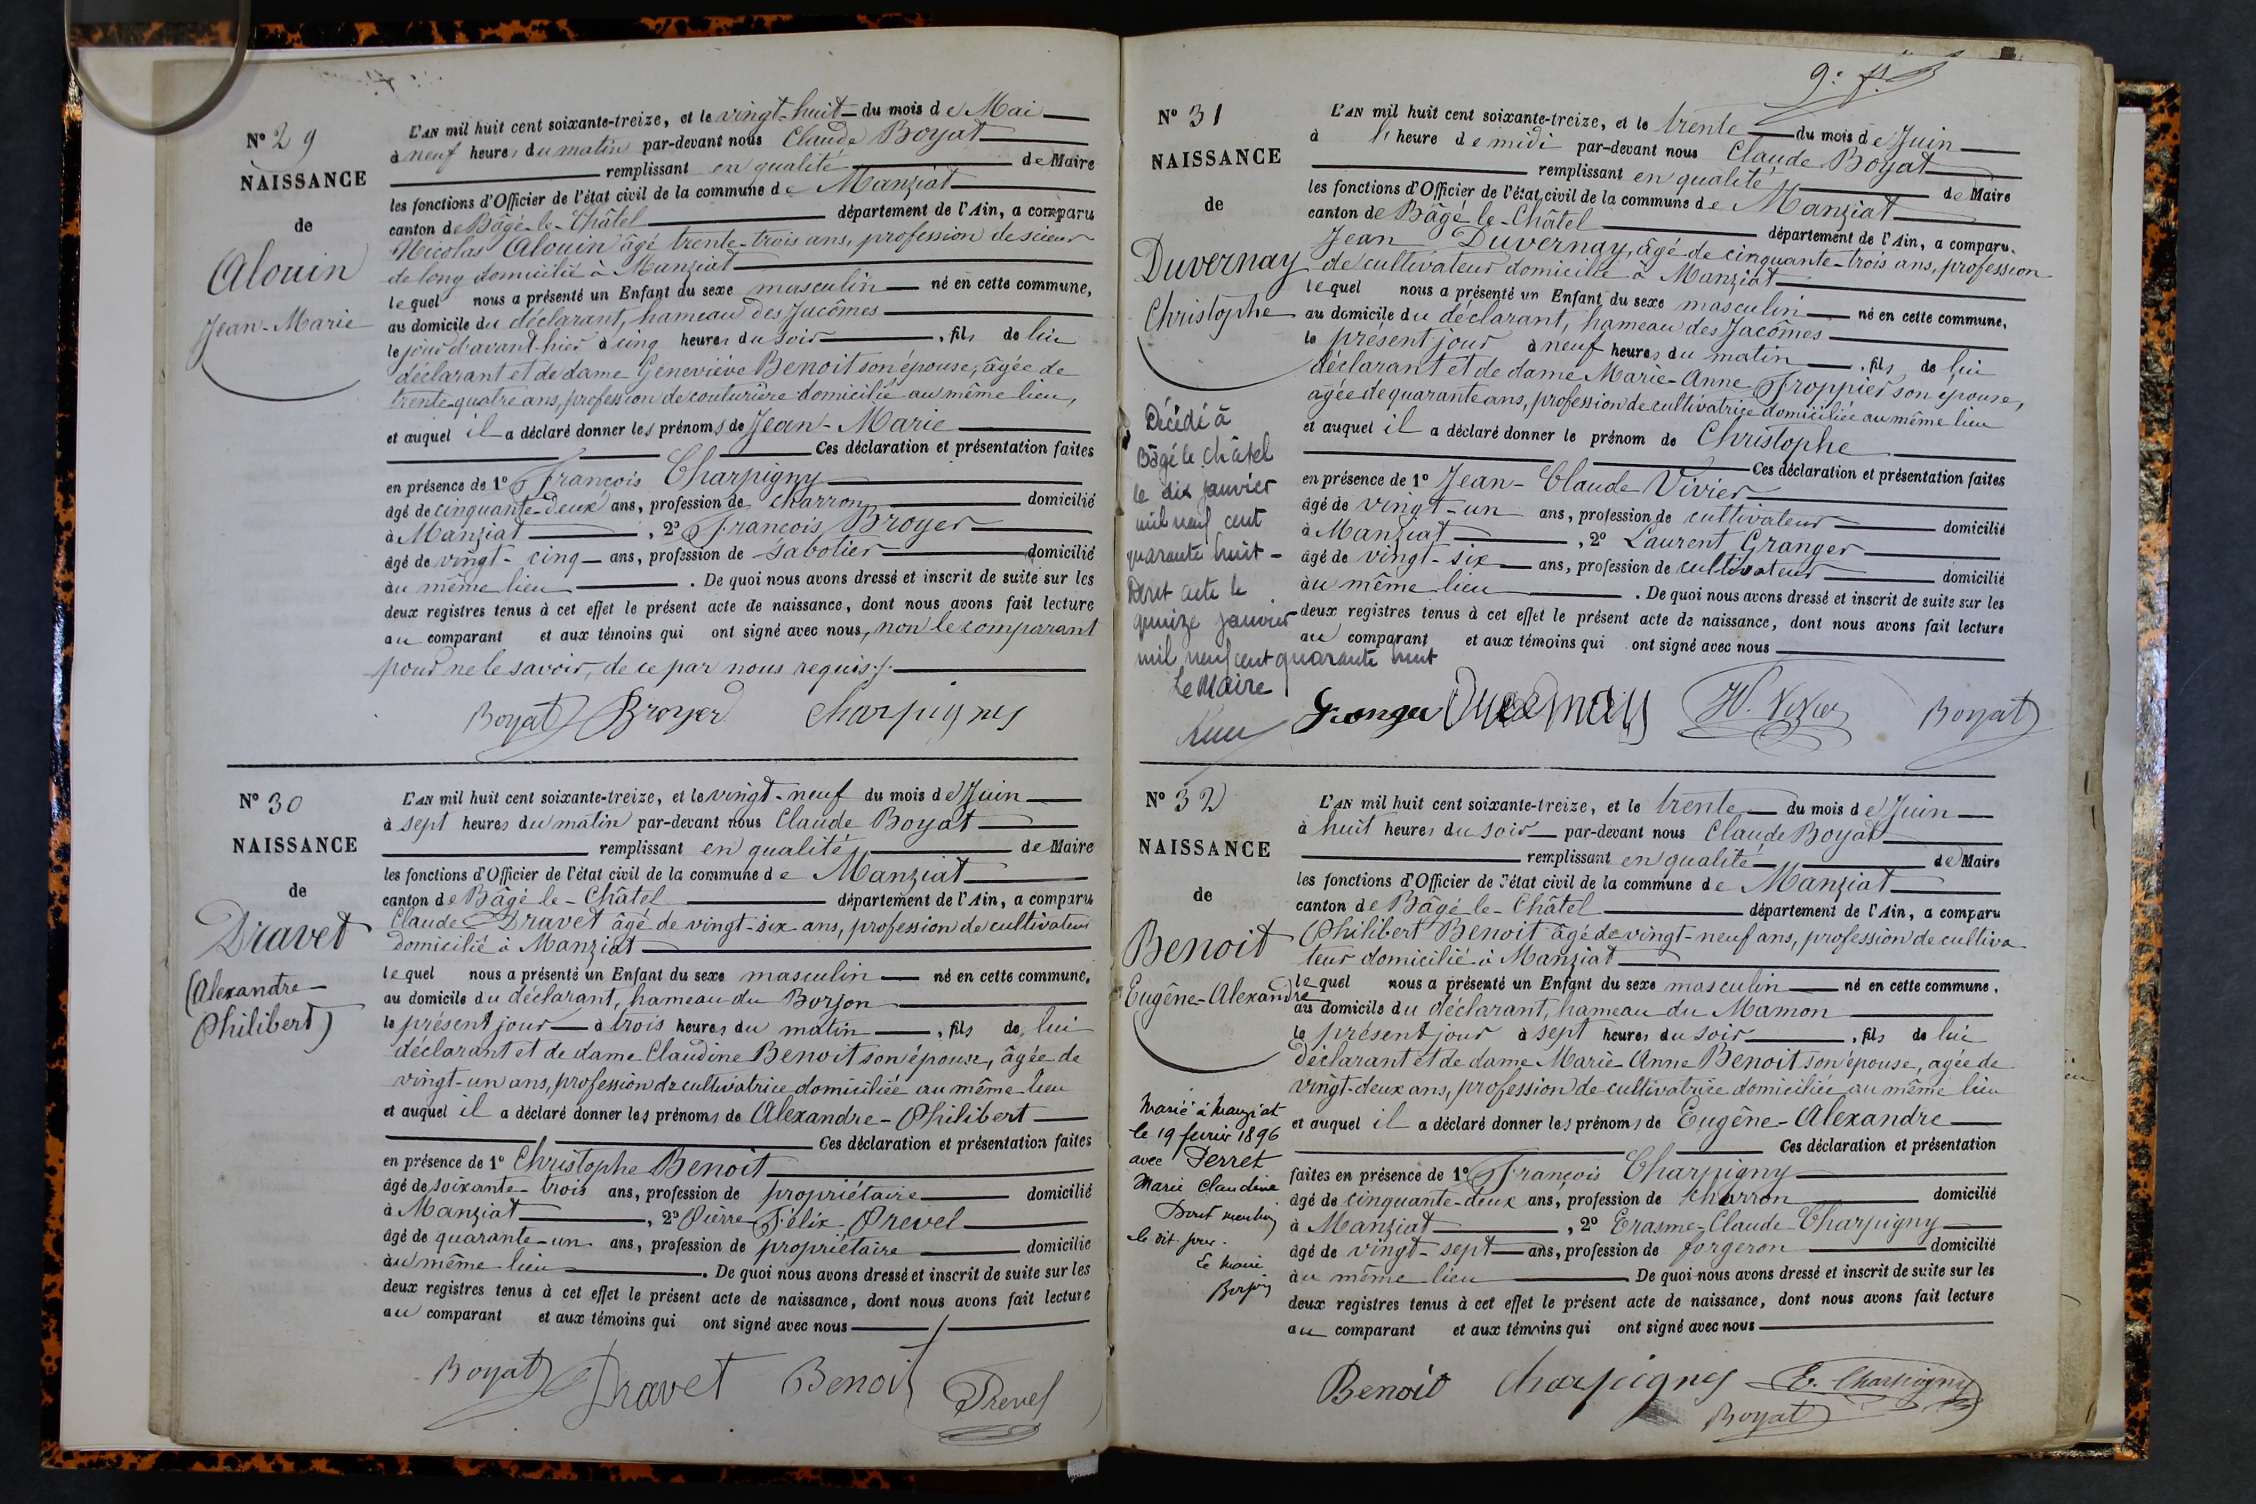 Nº 29
NAISSANCE
de
Alouin
Jean-Marie
L'AN mil huit cent soixante-treize, et le vingt-huit du mois de Mai
à neuf heures du matin par-devant nous Claude Boyat
remplissant en qualité de Maire
les fonctions d'Officier de l'état civil de la commune de Manziat
canton de Bâgé-le-Châtel département de l'Ain, a comparu
Nicolas Alouin âgé trente-trois ans, profession de scieur
de long domicilié à Manziat
lequel nous a présenté un Enfant du sexe masculin né en cette commune,
au domicile du déclarant, hameau des Jacômes
le jour d'avant-hier à cinq heures du soir, fils de lui
déclarant et de dame Geneviève Benoit son épouse, âgée de
trente-quatre ans, profession de couturière domiciliée au même lieu,
et auquel il a déclaré donner les prénoms de Jean-Marie
Ces déclaration et présentation faites
en présence de 1º François Charpigny
âgé de cinquante-deux ans, profession de charron domicilié
à Manziat, 2º François Broyer
âgé de vingt-cinq ans, profession de sabotier domicilié
au même lieu. De quoi nous avons dressé et inscrit de suite sur les
deux registres tenus à cet effet le présent acte de naissance, dont nous avons fait lecture
au comparant et aux témoins qui ont signé avec nous, non le comparant
pour ne le savoir, de ce par nous requis./.
Boyat Broyer Charpigny
Nº 30
NAISSANCE
de
Dravet
(Alexandre-
Philibert)
L'AN mil huit cent soixante-treize, et le vingt-neuf du mois de Juin
à sept heures du matin par-devant nous Claude Boyat
remplissant en qualité de Maire
les fonctions d'Officier de l'état civil de la commune de Manziat
canton de Bâgé-le-Châtel département de l'Ain, a comparu
Claude Dravet âgé de vingt-six ans, profession de cultivateur
domicilié à Manziat
lequel nous a présenté un Enfant du sexe masculin né en cette commune,
au domicile du déclarant, hameau du Borjon
le présent jour à trois heures du matin, fils de lui
déclarant et de dame Claudine Benoit son épouse, âgée de
vingt-un ans, profession de cultivatrice domiciliée au même lieu
et auquel il a déclaré donner les prénoms de Alexandre-Philibert
Ces déclaration et présentation faites
en présence de 1º Christophe Benoit
âgé de soixante-trois ans, profession de propriétaire domicilié
à Manziat, 2º Pierre-Félix Prevel
âgé de quarante-un ans, profession de propriétaire domicilié
au même lieu. De quoi nous avons dressé et inscrit de suite sur les
deux registres tenus à cet effet le présent acte de naissance, dont nous avons fait lecture
au comparant et aux témoins qui ont signé avec nous
Boyat Dravet Benoit Prevel
Nº 31
NAISSANCE
de
Duvernay
Christophe
Décédé à
Bâgé le Châtel
le dix janvier
mil neuf cent
quarante huit -
Dont acte le
quinze janvier
mil neuf cent quarante huit
Le Maire
L'AN mil huit cent soixante-treize, et le trente du mois de Juin
à l' heure de midi par-devant nous Claude Boyat
remplissant en qualité de Maire
les fonctions d'Officier de l'état civil de la commune de Manziat
canton de Bâgé-le-Châtel département de l'Ain, a comparu
Jean Duvernay, âgé de cinquante-trois ans, profession
de cultivateur domicilié à Manziat
lequel nous a présenté un Enfant du sexe masculin né en cette commune,
au domicile du déclarant, hameau des Jacômes
le présent jour à neuf heures du matin, fils de lui
déclarant et de dame Marie-Anne Froppier son épouse,
âgée de quarante ans, profession de cultivatrice domiciliée au même lieu
et auquel il a déclaré donner le prénom de Christophe
Ces déclaration et présentation faites
en présence de 1º Jean-Claude Vivier
âgé de vingt-un ans, profession de cultivateur domicilié
à Manziat, 2º Laurent Granger
âgé de vingt-six ans, profession de cultivateur domicilié
au même lieu. De quoi nous avons dressé et inscrit de suite sur les
deux registres tenus à cet effet le présent acte de naissance, dont nous avons fait lecture
au comparant et aux témoins qui ont signé avec nous
Granger Duvernay Boyat
Nº 32
NAISSANCE
de
Benoit
Eugêne-Alexandre
Marié à Manziat
le 19 fevrier 1896
avec Perret
Marie Claudine
Dont mention
le dit jour.
Le Maire
L'AN mil huit cent soixante-treize, et le trente du mois de Juin
à huit heures du soir par-devant nous Claude Boyat
remplissant en qualité de Maire
les fonctions d'Officier de l'état civil de la commune de Manziat
canton de Bâgé-le-Châtel département de l'Ain, a comparu
Philibert Benoit âgé de vingt-neuf ans, profession de cultiva
teur domicilié à Manziat
lequel nous a présenté un Enfant du sexe masculin né en cette commune,
au domicile du déclarant, hameau du Mamon
le présent jour à sept heures du soir, fils de lui
déclarant et de dame Marie-Anne Benoit son épouse, agée de
vingt-deux ans, profession de cultivatrice domiciliée au même lieu
et auquel il a déclaré donner les prénoms de Eugêne-Alexandre
Ces déclaration et présentation
faites en présence de 1º François Charpigny
âgé de cinquante-deux ans, profession de charron domicilié
à Manziat, 2º Erasme-Claude Charpigny
âgé de vingt-sept ans, profession de forgeron domicilié
au même lieu De quoi nous avons dressé et inscrit de suite sur les
deux registres tenus à cet effet le présent acte de naissance, dont nous avons fait lecture
au comparant et aux témoins qui ont signé avec nous
Benoit Charpigny E. Charpigny
Boyat